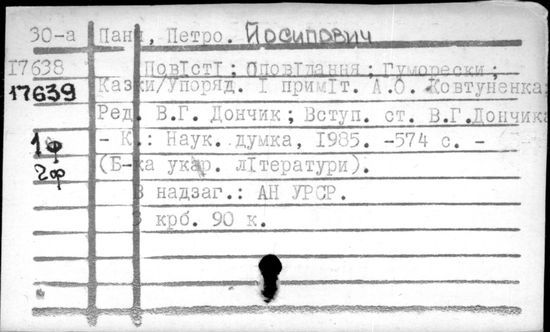 30-а Панч, Петро. Йосипович
17638 Повісті; Оповідання; Гуморески;
17639 Казки/Упоряд. і приміт. А.О. Ковтуненка;
Ред. В.Г. Дончик; Вступ. ст. В.Г.Дончика
1ф - К.: Наук. думка, 1985. -574 с. -
2ф (Б-ка укр. літератури).
В надзаг.: АН УРСР.
3 крб. 90 к.